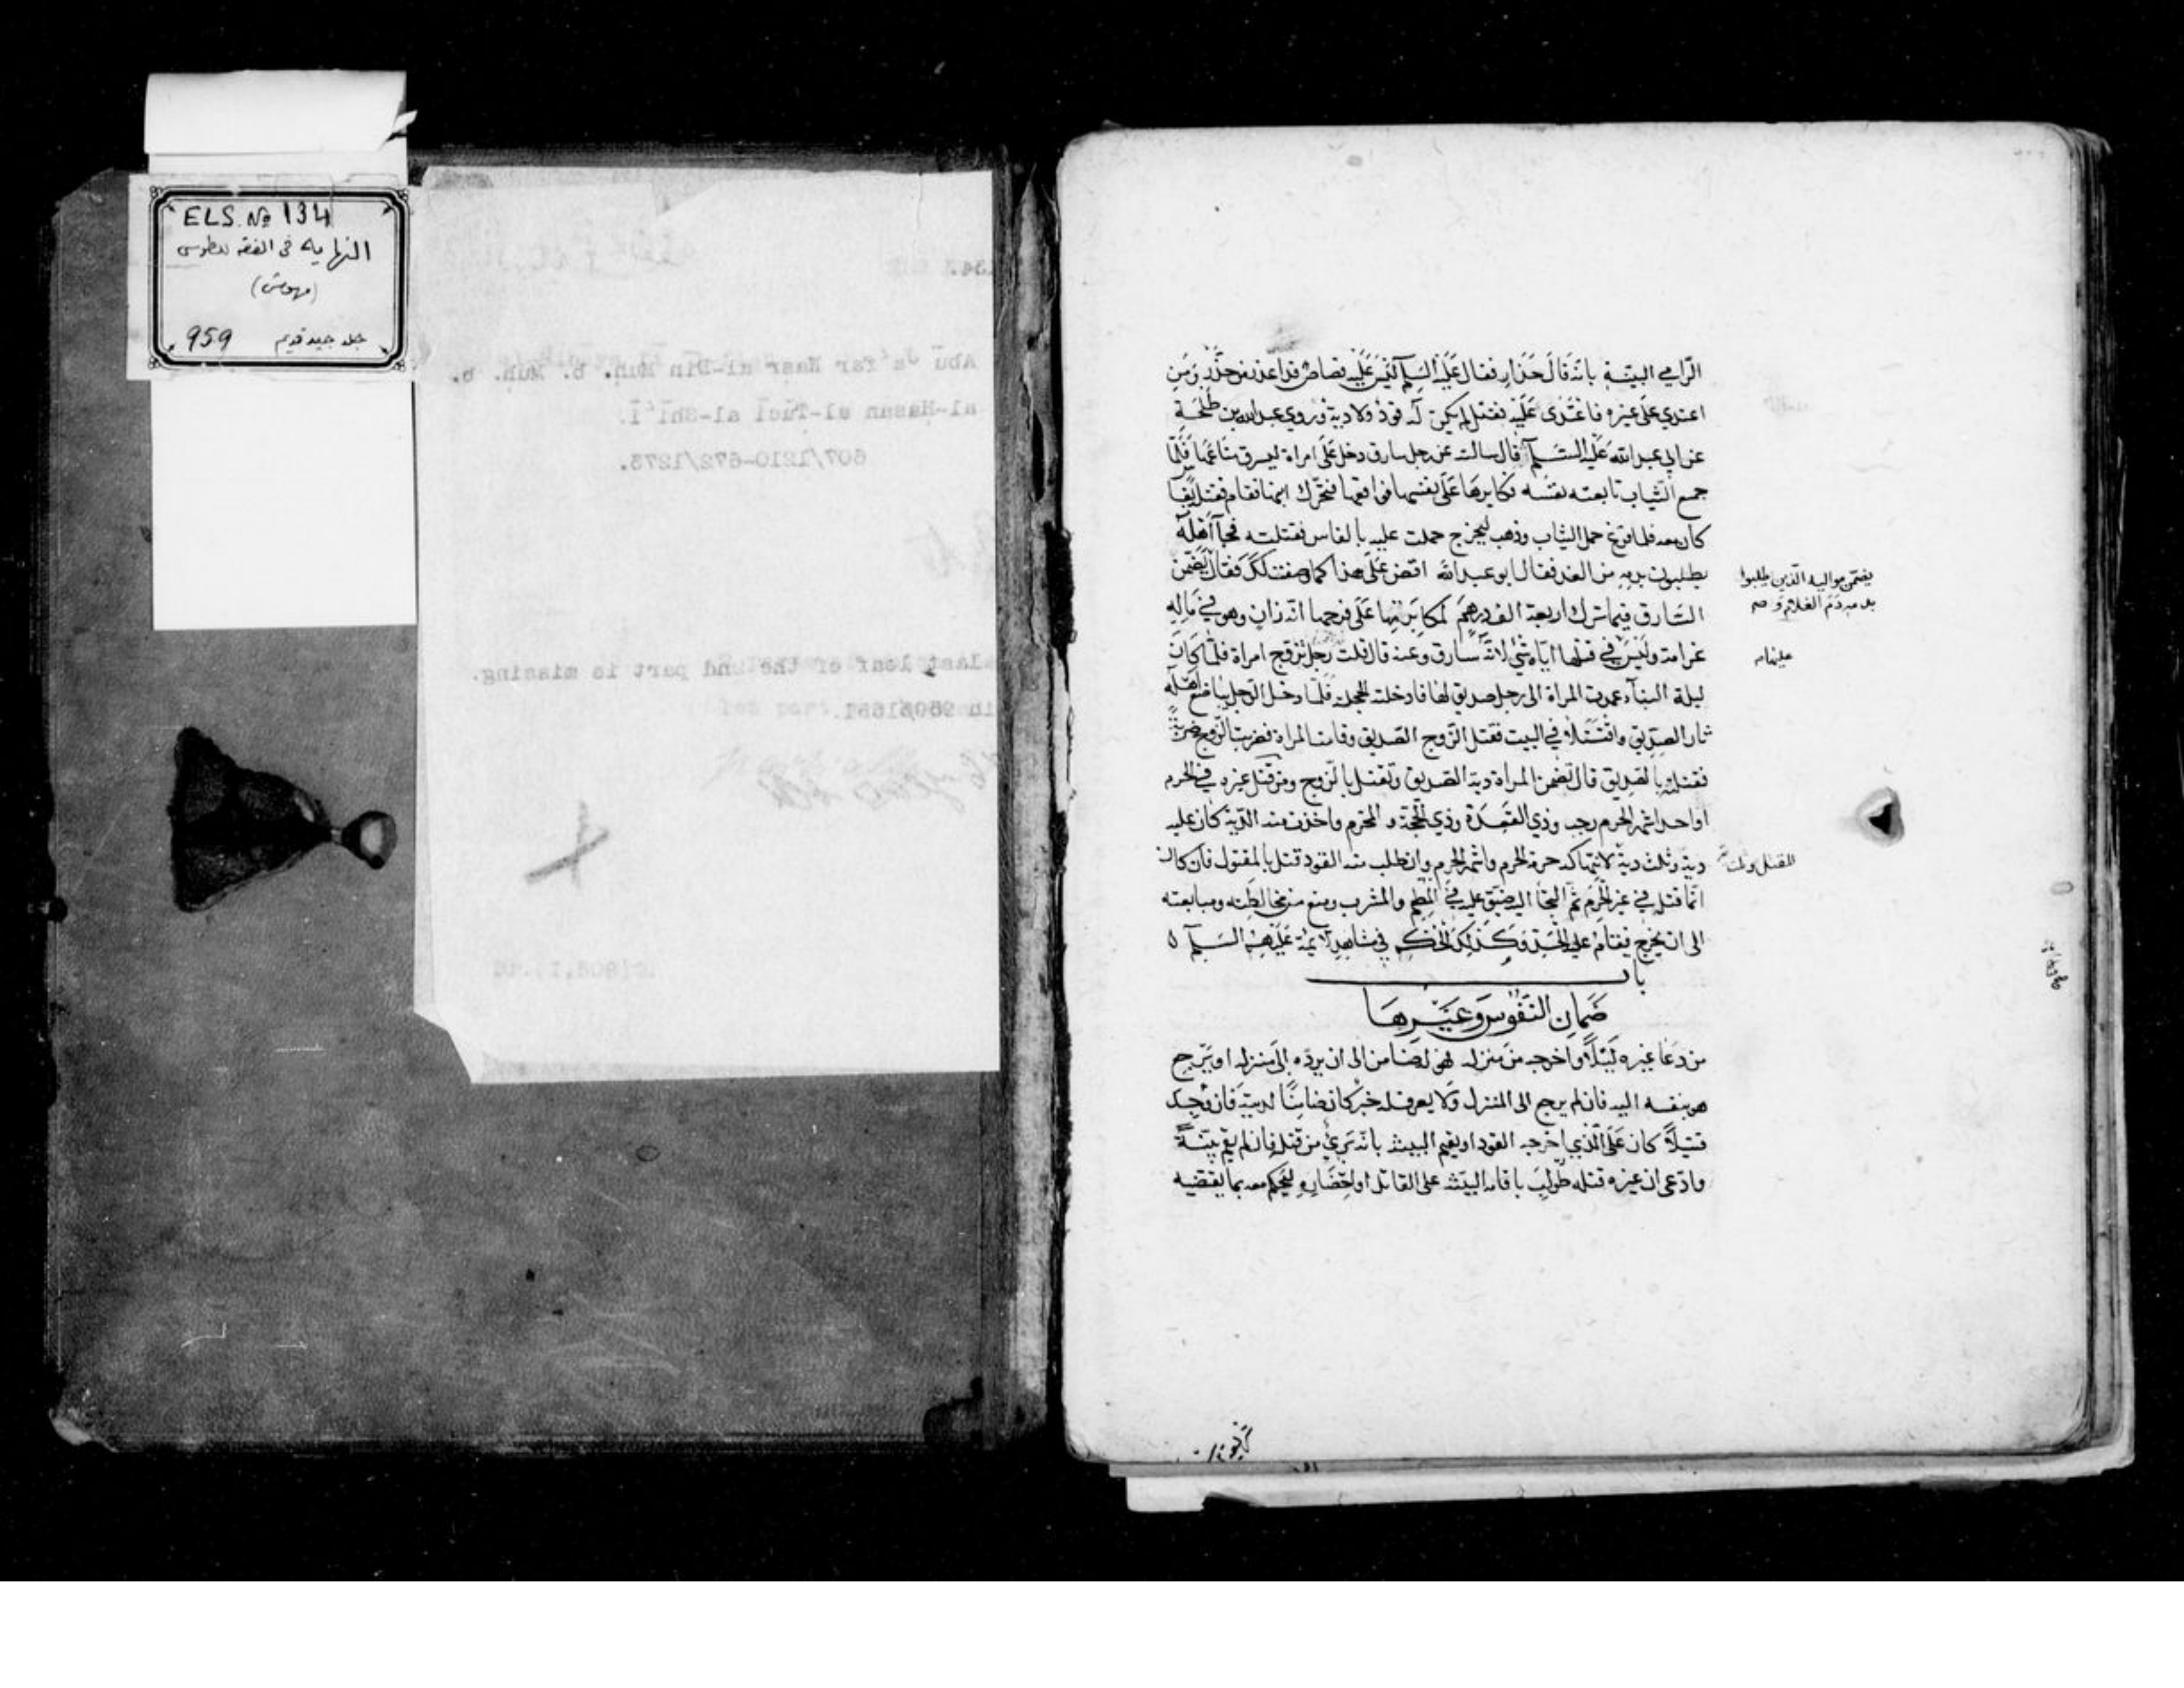 ELS. No 134
النهايه فى الفقه للطوسى
(مهوش)
جلد جيد قديم 959
Abū Ja'far Nasr al-Din Muh. b. Muh. b.
al-Hasan al-Tūsī al-Shī'ī.
607/1210-672/1273.
last leaf of the 2nd part is missing.
الرامي البينة بانه قال حذار فقال عليه السلم ليس عليه قصاص قد اعذر من حذر ومن
اعتدي على غيره فاعتدى عليه فقتل لم يكن له قود ولا دية وروي عبد الله بن طلحة
عن ابي عبد الله عليه السلم قال سالته عن رجل سارق دخل على امراة ليسرق متاعها فلما
جمع الثياب تابعته نفسه فكابرها على نفسها فواقعها فتحرك ابنها فقام فقتله بفاس
كان معه فلما فرغ حمل الثياب وذهب ليخرج حملت عليه بالفاس فقتلته فجآ اهله
يطلبون بدمه من الغد فقال ابو عبد الله اقض على هذا كما وصفت لك فقال يضمن
يضمن مواليه الذين طلبوا
بدمه دم الغلام و صح
السارق فيما ترك اربعة الف درهم لمكابرتها على فرجها انه زان وهو في ماله
غرامة وليس في قتلها اياه شي لانه سارق وعنه قال قلت رجل تزوج امراة فلما كان
ليلة البنآء عمدت المراة الى رجل صديق لها فادخلته الحجلة فلما دخل الرجل يباضع اهله
ثار الصديق واقتتلا في البيت فقتل الزوج الصديق وقامت المراة فضربت الزوج ضربة
فقتلته بالصديق قال تضمن المراة دية الصديق وتقتل بالزوج ومن قتل غيره في الحرم
او احد اشهر الحرم رجب وذي القعدة وذي الحجة و المحرم واخذت منه الدية كان عليه
دية وثلث دية لانتهاكه حرمة الحرم واشهر الحرم وان طلب منه القود قتل بالمقتول فان كان
انما قتل في غير الحرم ثم التجأ اليه ضيق عليه في المطعم والمشرب ومنع من مخالطته ومبايعته
الى ان يخرج فيقام عليه الحد وكذلك الحكم في مشاهد الايمة عليهم السلم
باب
ضمان النفوس وغيرها
من دعا غيره ليلا واخرجه من منزله فهو له ضامن الى ان يرده الى منزله او يرجع
هو بنفسه اليه فان لم يرجع الى المنزل ولا يعرف له خبر كان ضامنا لديته فان وجد
قتيلا كان على الذي اخرجه القود او يقيم البينة بانه بريء من قتله فان لم يقم بينة
وادعى ان غيره قتله طولب باقامة البينة على القاتل او احضاره ليحكم معه بما يقتضيه